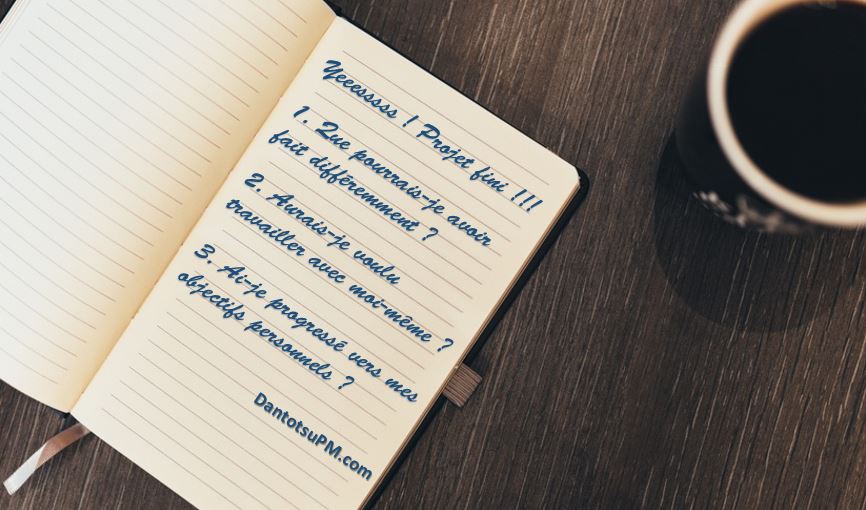 Yeeesssss ! Projet fini !!!
1. Que pourrais-je avoir
fait différemment ?
2. Aurais-je voulu
travailler avec moi-même ?
3. Ai-je progressé vers mes
objectifs personnels ?
DantotsuPM.com